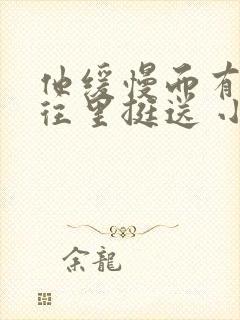 他缓慢而有
往里挺送 小
余龍